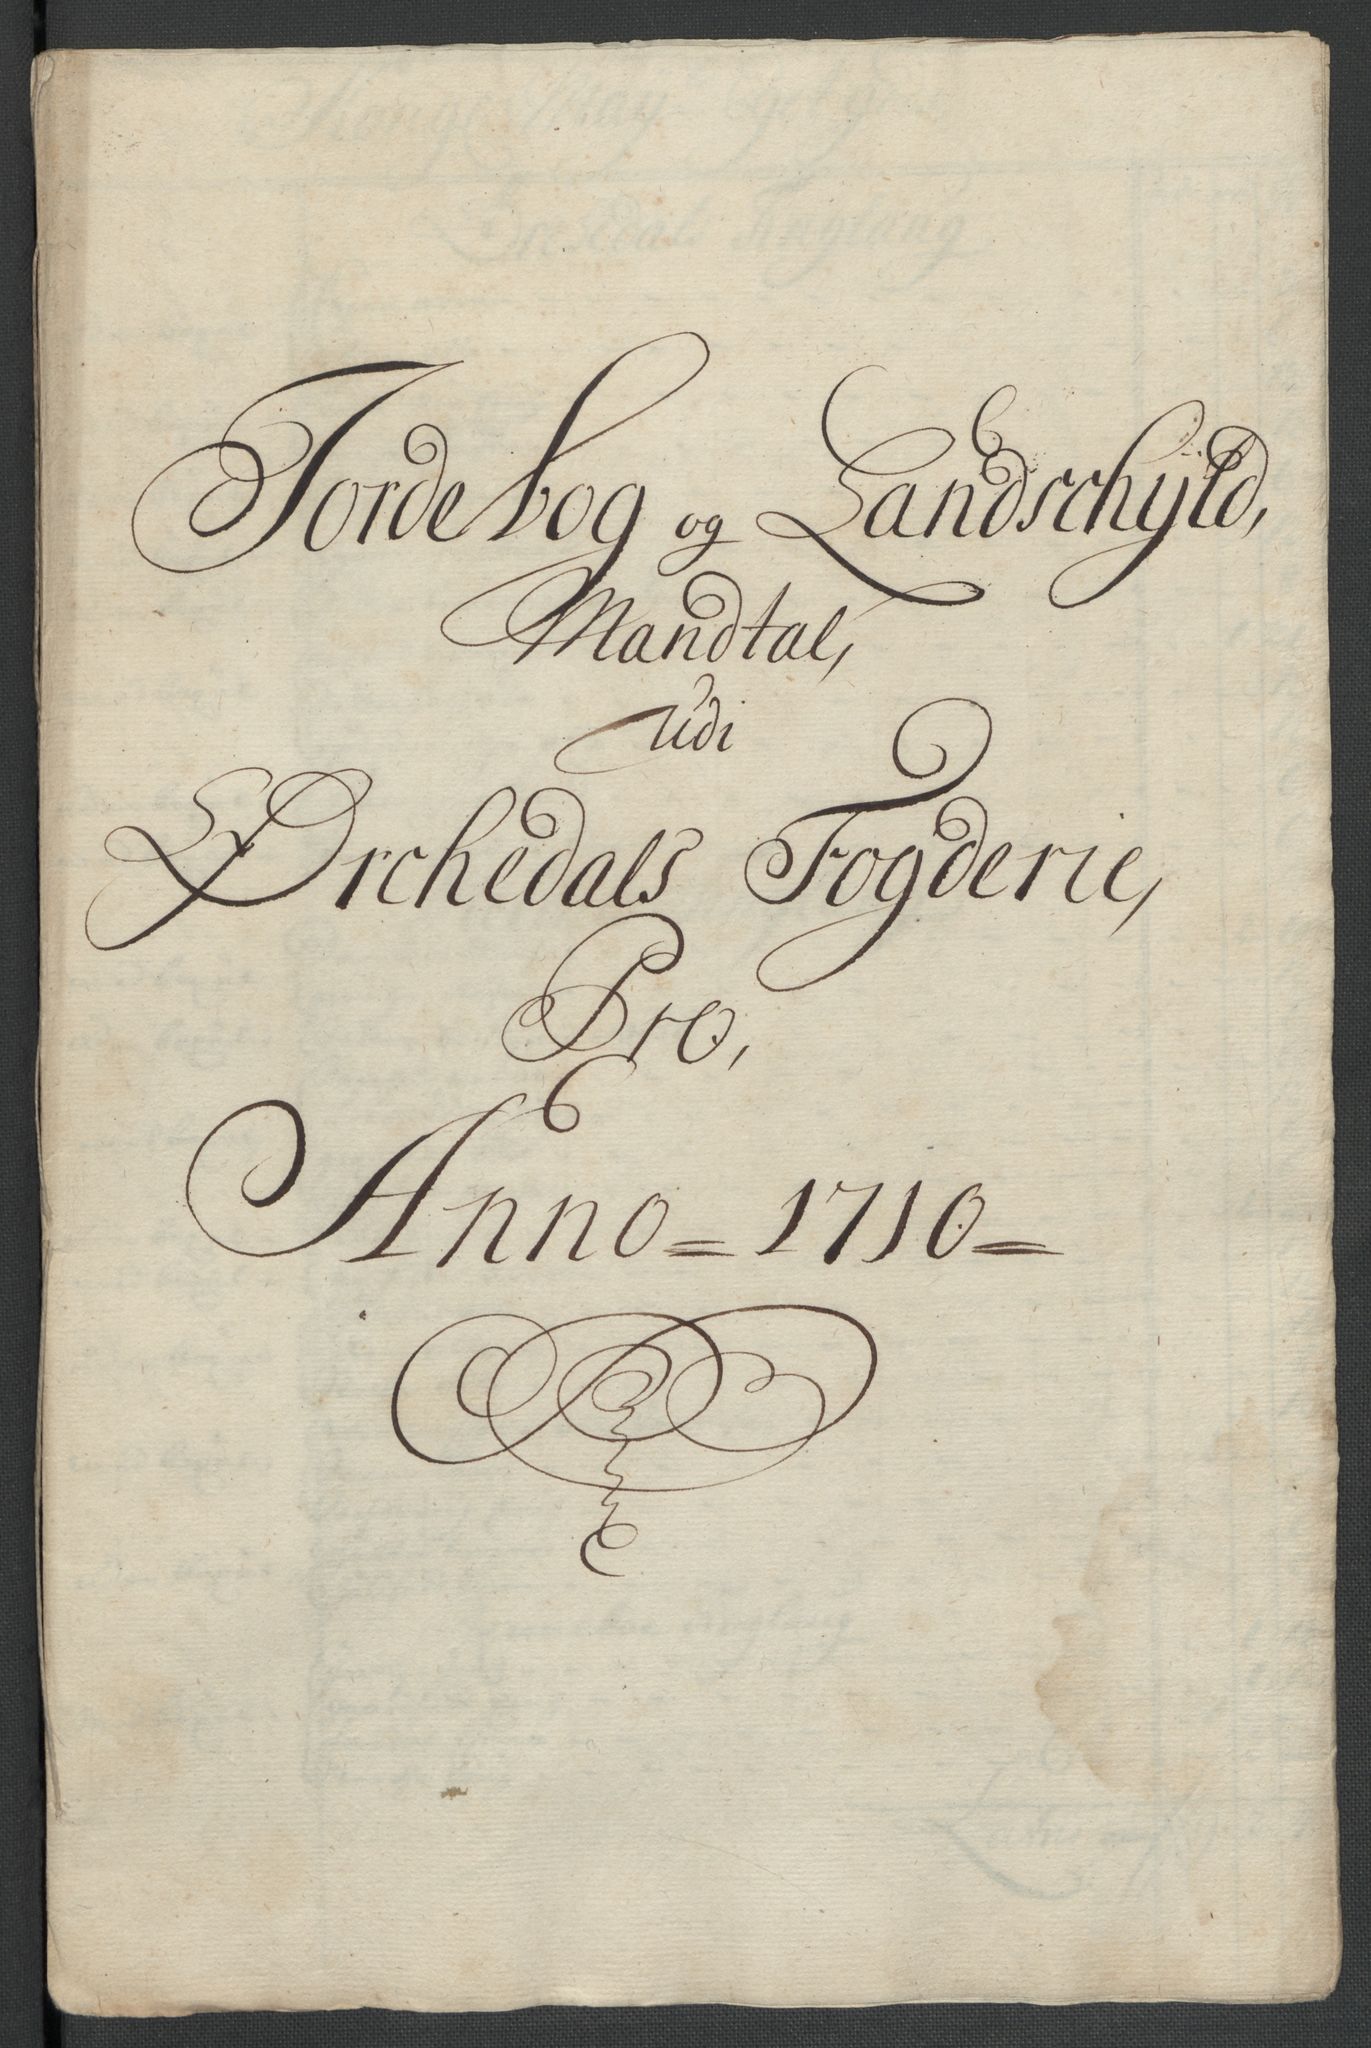 Jordebog og Landschyld,
Mandtal,
udi
Ørchedals Fogderie,
Pro,
Anno = 1710 =